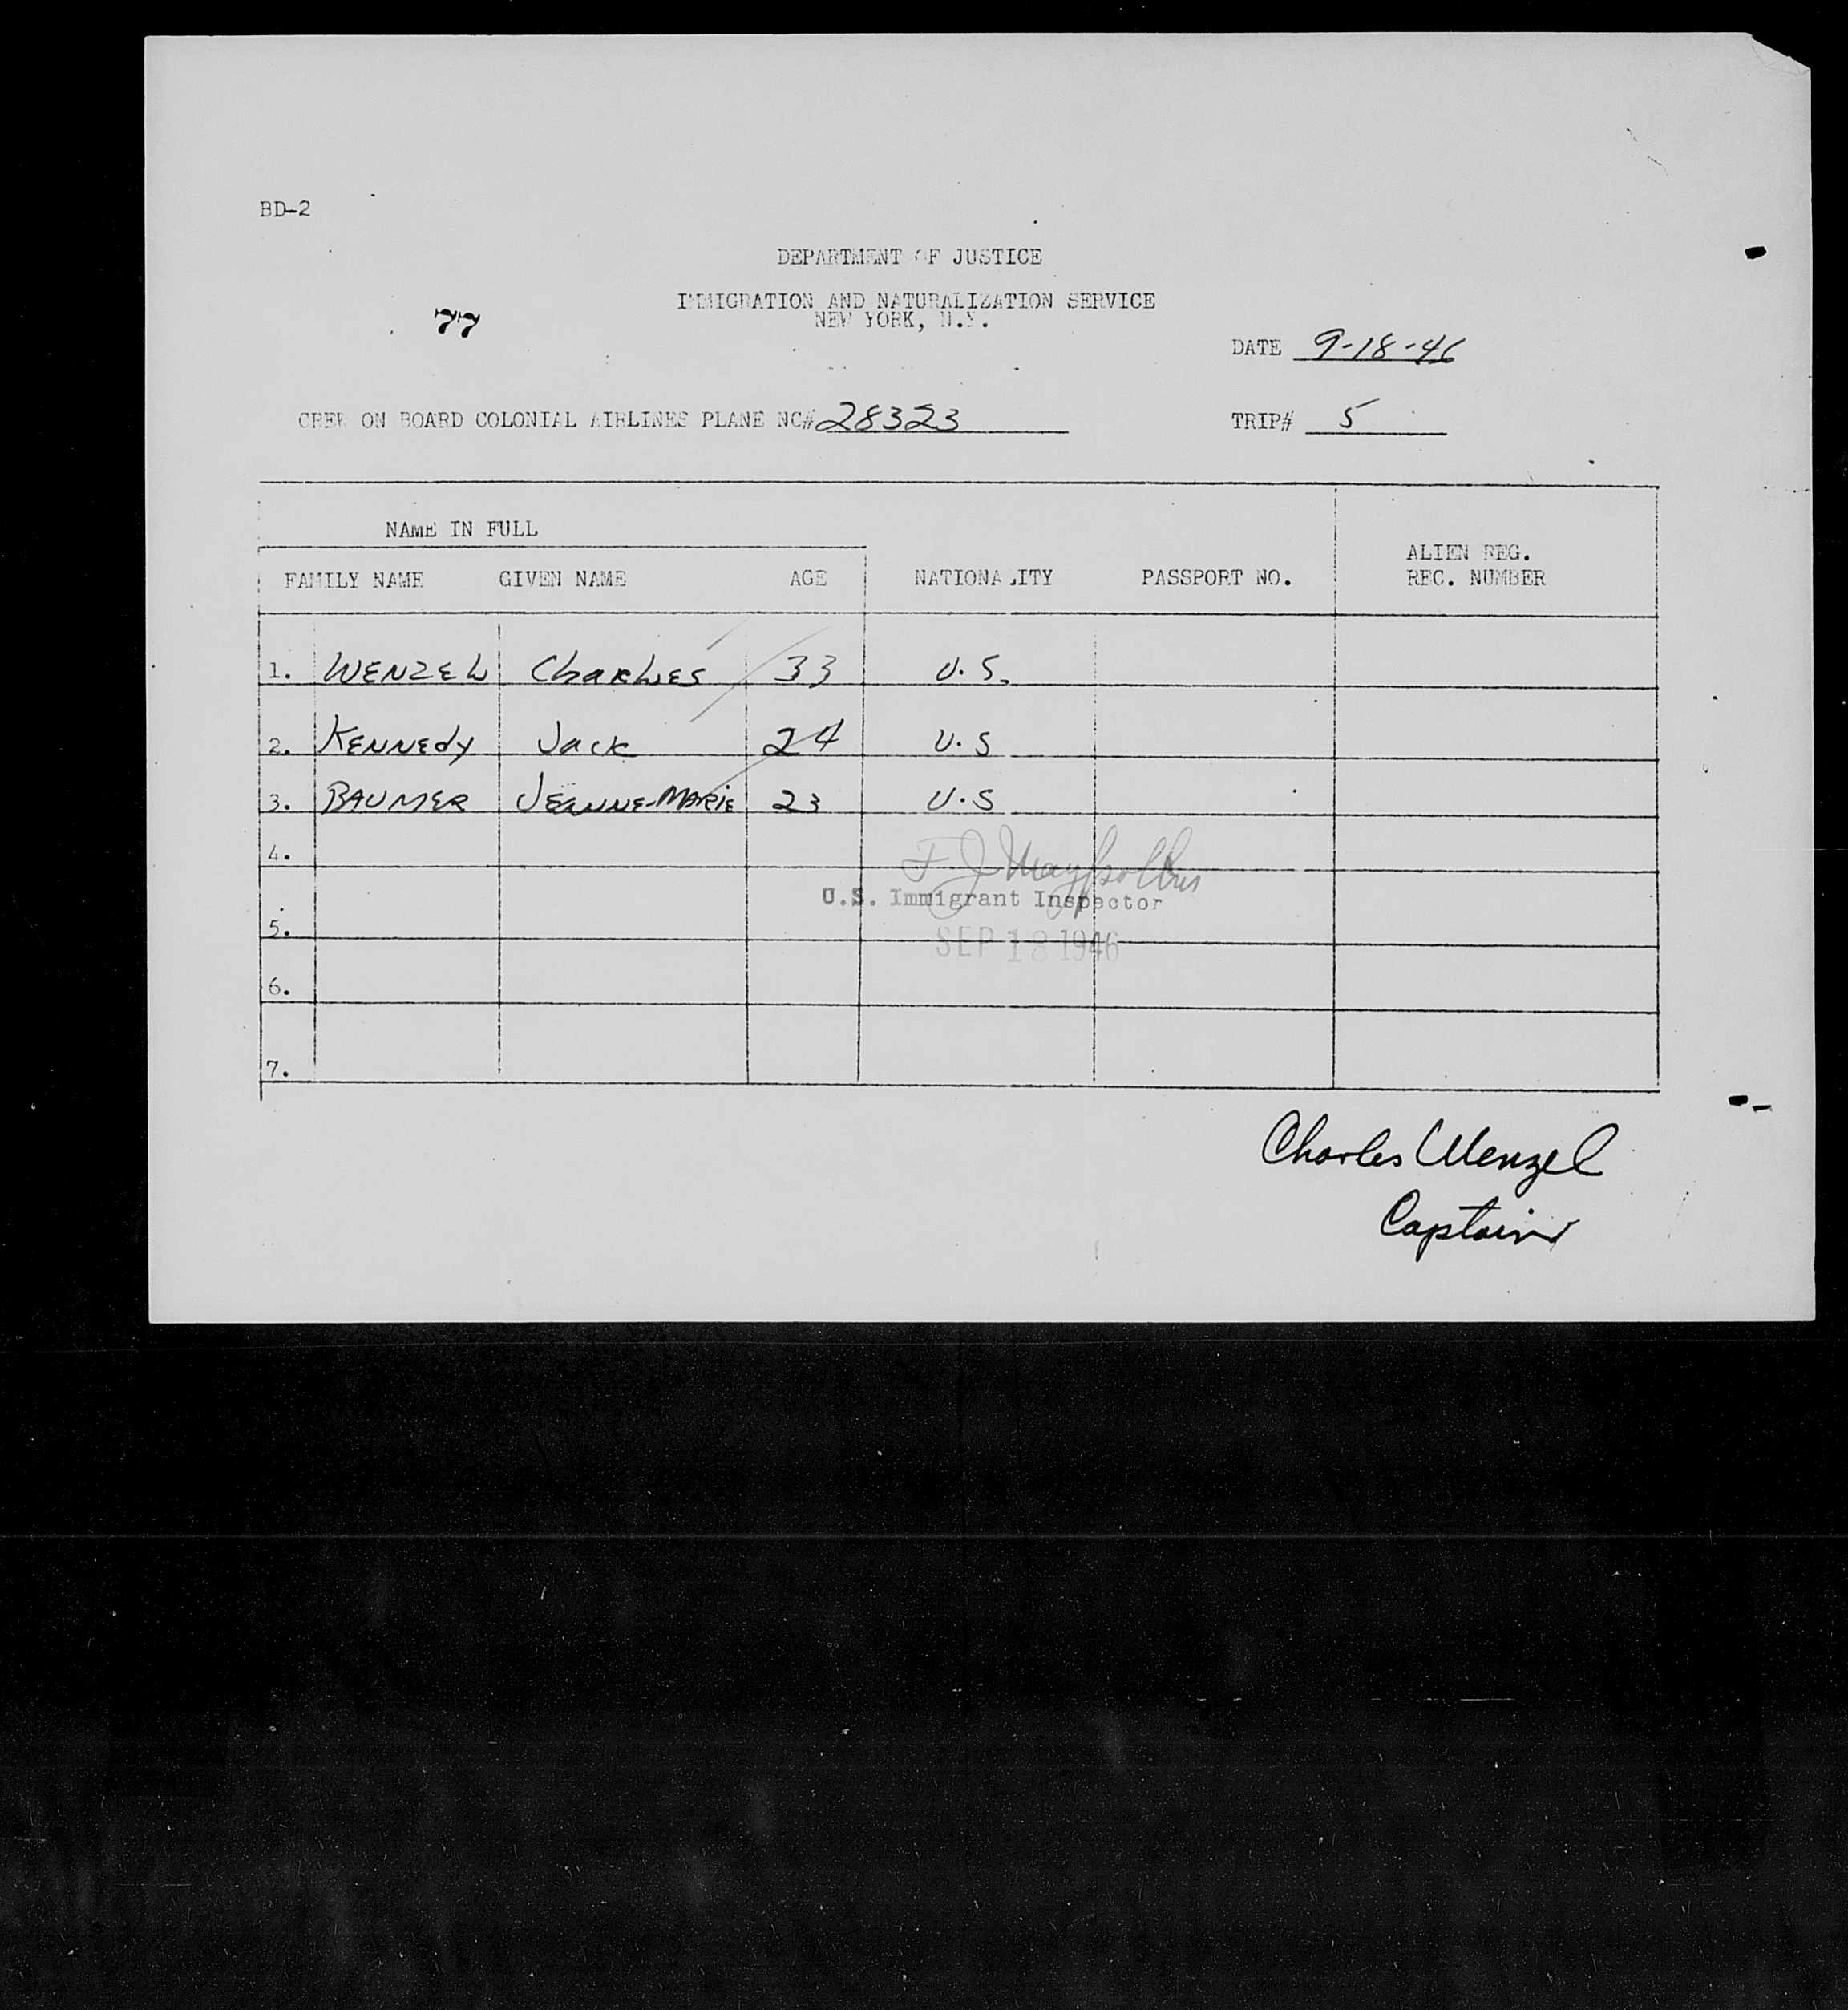 BD-2
DEPARTMENT OF JUSTICE
IMMIGRATION AND NATURALIZATION SERVICE
NEW YORK, N.Y.
77
DATE 9-18-46
CREW ON BOARD COLONIAL AIRLINES PLANE NC# 28323 TRIP# 5
NAME IN FULL
ALIEN REG.
FAMILY NAME GIVEN NAME AGE NATIONALITY PASSPORT NO. REC. NUMBER
1. WENZEL Charles 33 U.S.
2. Kennedy Jack 24 U.S
3. BAUMER JEANNE-MARIE 23 U.S
4.
F. J.
U.S. Immigrant Inspector
5.
SEP 18 1946
6.
7.
Charles Wenzel
Captain